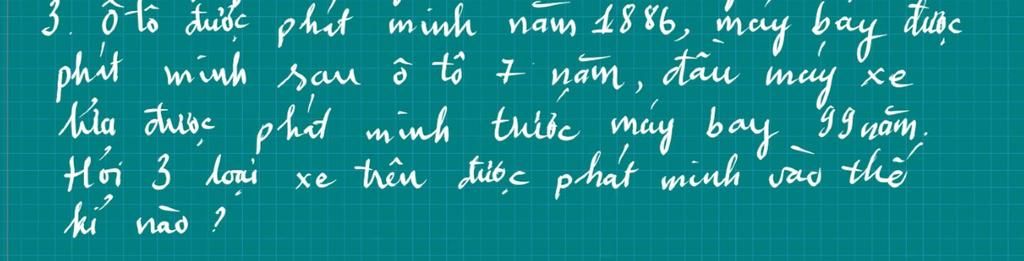 3. Ô tô được phát minh năm 1886, máy bay được
phát minh sau ô tô 7 năm, đầu máy xe
lửa được phát minh trước máy bay 99 năm.
Hỏi 3 loại xe trên được phát minh vào thế
kỉ nào ?